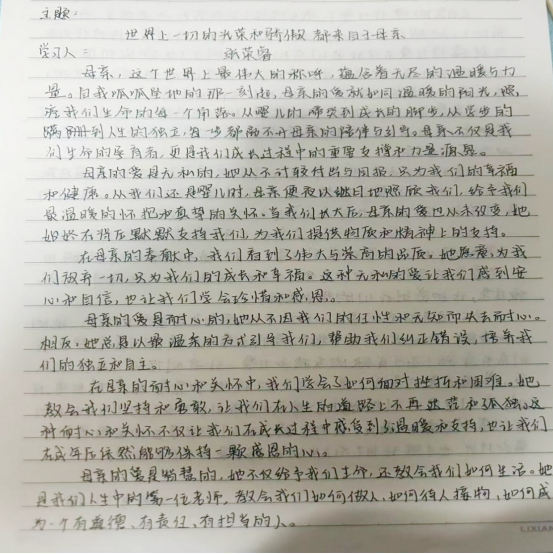 主题:
世界上一切的光荣和骄傲 都来自于母亲
学习人:
母亲,这个世界上最伟大的称呼,蕴含着无尽的温暖与力
量。自我呱呱坠地的那一刻起,母亲的爱就如同温暖的阳光,照
亮我们生命的每一个角落。从婴儿的啼哭到成长的脚步,从学步的
蹒跚到人生的独立,每一步都离不开母亲的陪伴与引导。母亲不仅是我
们生命的孕育者,更是我们成长过程中的重要支撑和力量源泉。
母亲的爱是无私的,她从不计较付出与回报,只为我们的幸福
和健康。从我们还是婴儿时,母亲便夜以继日地照顾我们,给予我们
最温暖的怀抱和真挚的关怀。当我们长大后,母亲的爱也从未改变,她
始终在背后默默支持我们,为我们提供物质和精神上的支持。
在母亲的奉献中,我们看到了伟大与崇高的品质。她愿意为我
们放弃一切,只为我们的成长和幸福。这种无私的爱让我们感到安
心和自信,也让我们学会珍惜和感恩。
母亲的爱是耐心的,她从不因我们的任性和无知而失去耐心。
相反,她总是以最温柔的方式引导我们,帮助我们纠正错误,培养我
们的独立和自主。
在母亲的耐心和关怀中,我们学会了如何面对挫折和困难。她
教会我们坚持和勇敢,让我们在人生的道路上不再迷茫和孤独。这
种耐心和关怀不仅让我们在成长过程中感受到了温暖和支持,也让我们
在成年后依然能够保持一颗感恩的心。
母亲的爱是智慧的,她不仅给予我们生命,还教会我们如何生活。她
是我们人生中的第一位老师,教会我们如何做人,如何待人接物,如何成
为一个有道德、有责任、有担当的人。